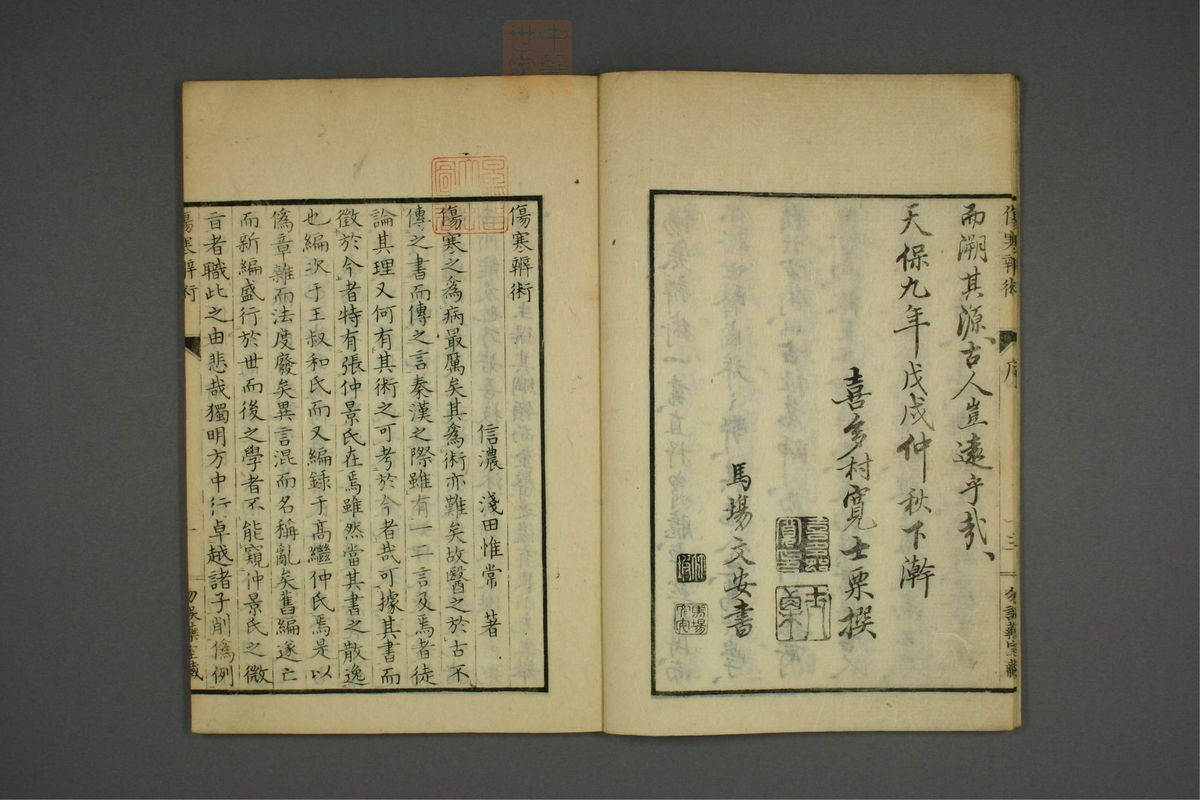 傷寒辨術
序
三
而溯其源古人豈遠乎哉
天保九年戊戌仲秋下澣
喜多村寬士栗撰
馬場文安書
傷寒辨術
信濃 淺田惟常 著
傷寒之爲病最厲矣其爲術亦難矣故醫之於古不
傳之書而傳之言秦漢之際雖有一二言及焉者徒
論其理又何有其術之可考於今者哉可據其書而
徵於今者特有張仲景氏在焉雖然當其書之散逸
也編次于王叔和氏而又編錄于高繼仲氏焉是以
僞章雜而法度廢矣異言混而名稱亂矣舊編遂亡
而新編盛行於世而後之學者不能窺仲景氏之微
旨者職此之由悲哉獨明方中行卓越諸子削僞例
傷寒辨術
一